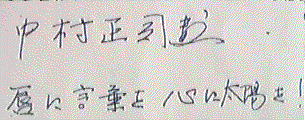 中村正司
唇に言葉を 心に太陽を!